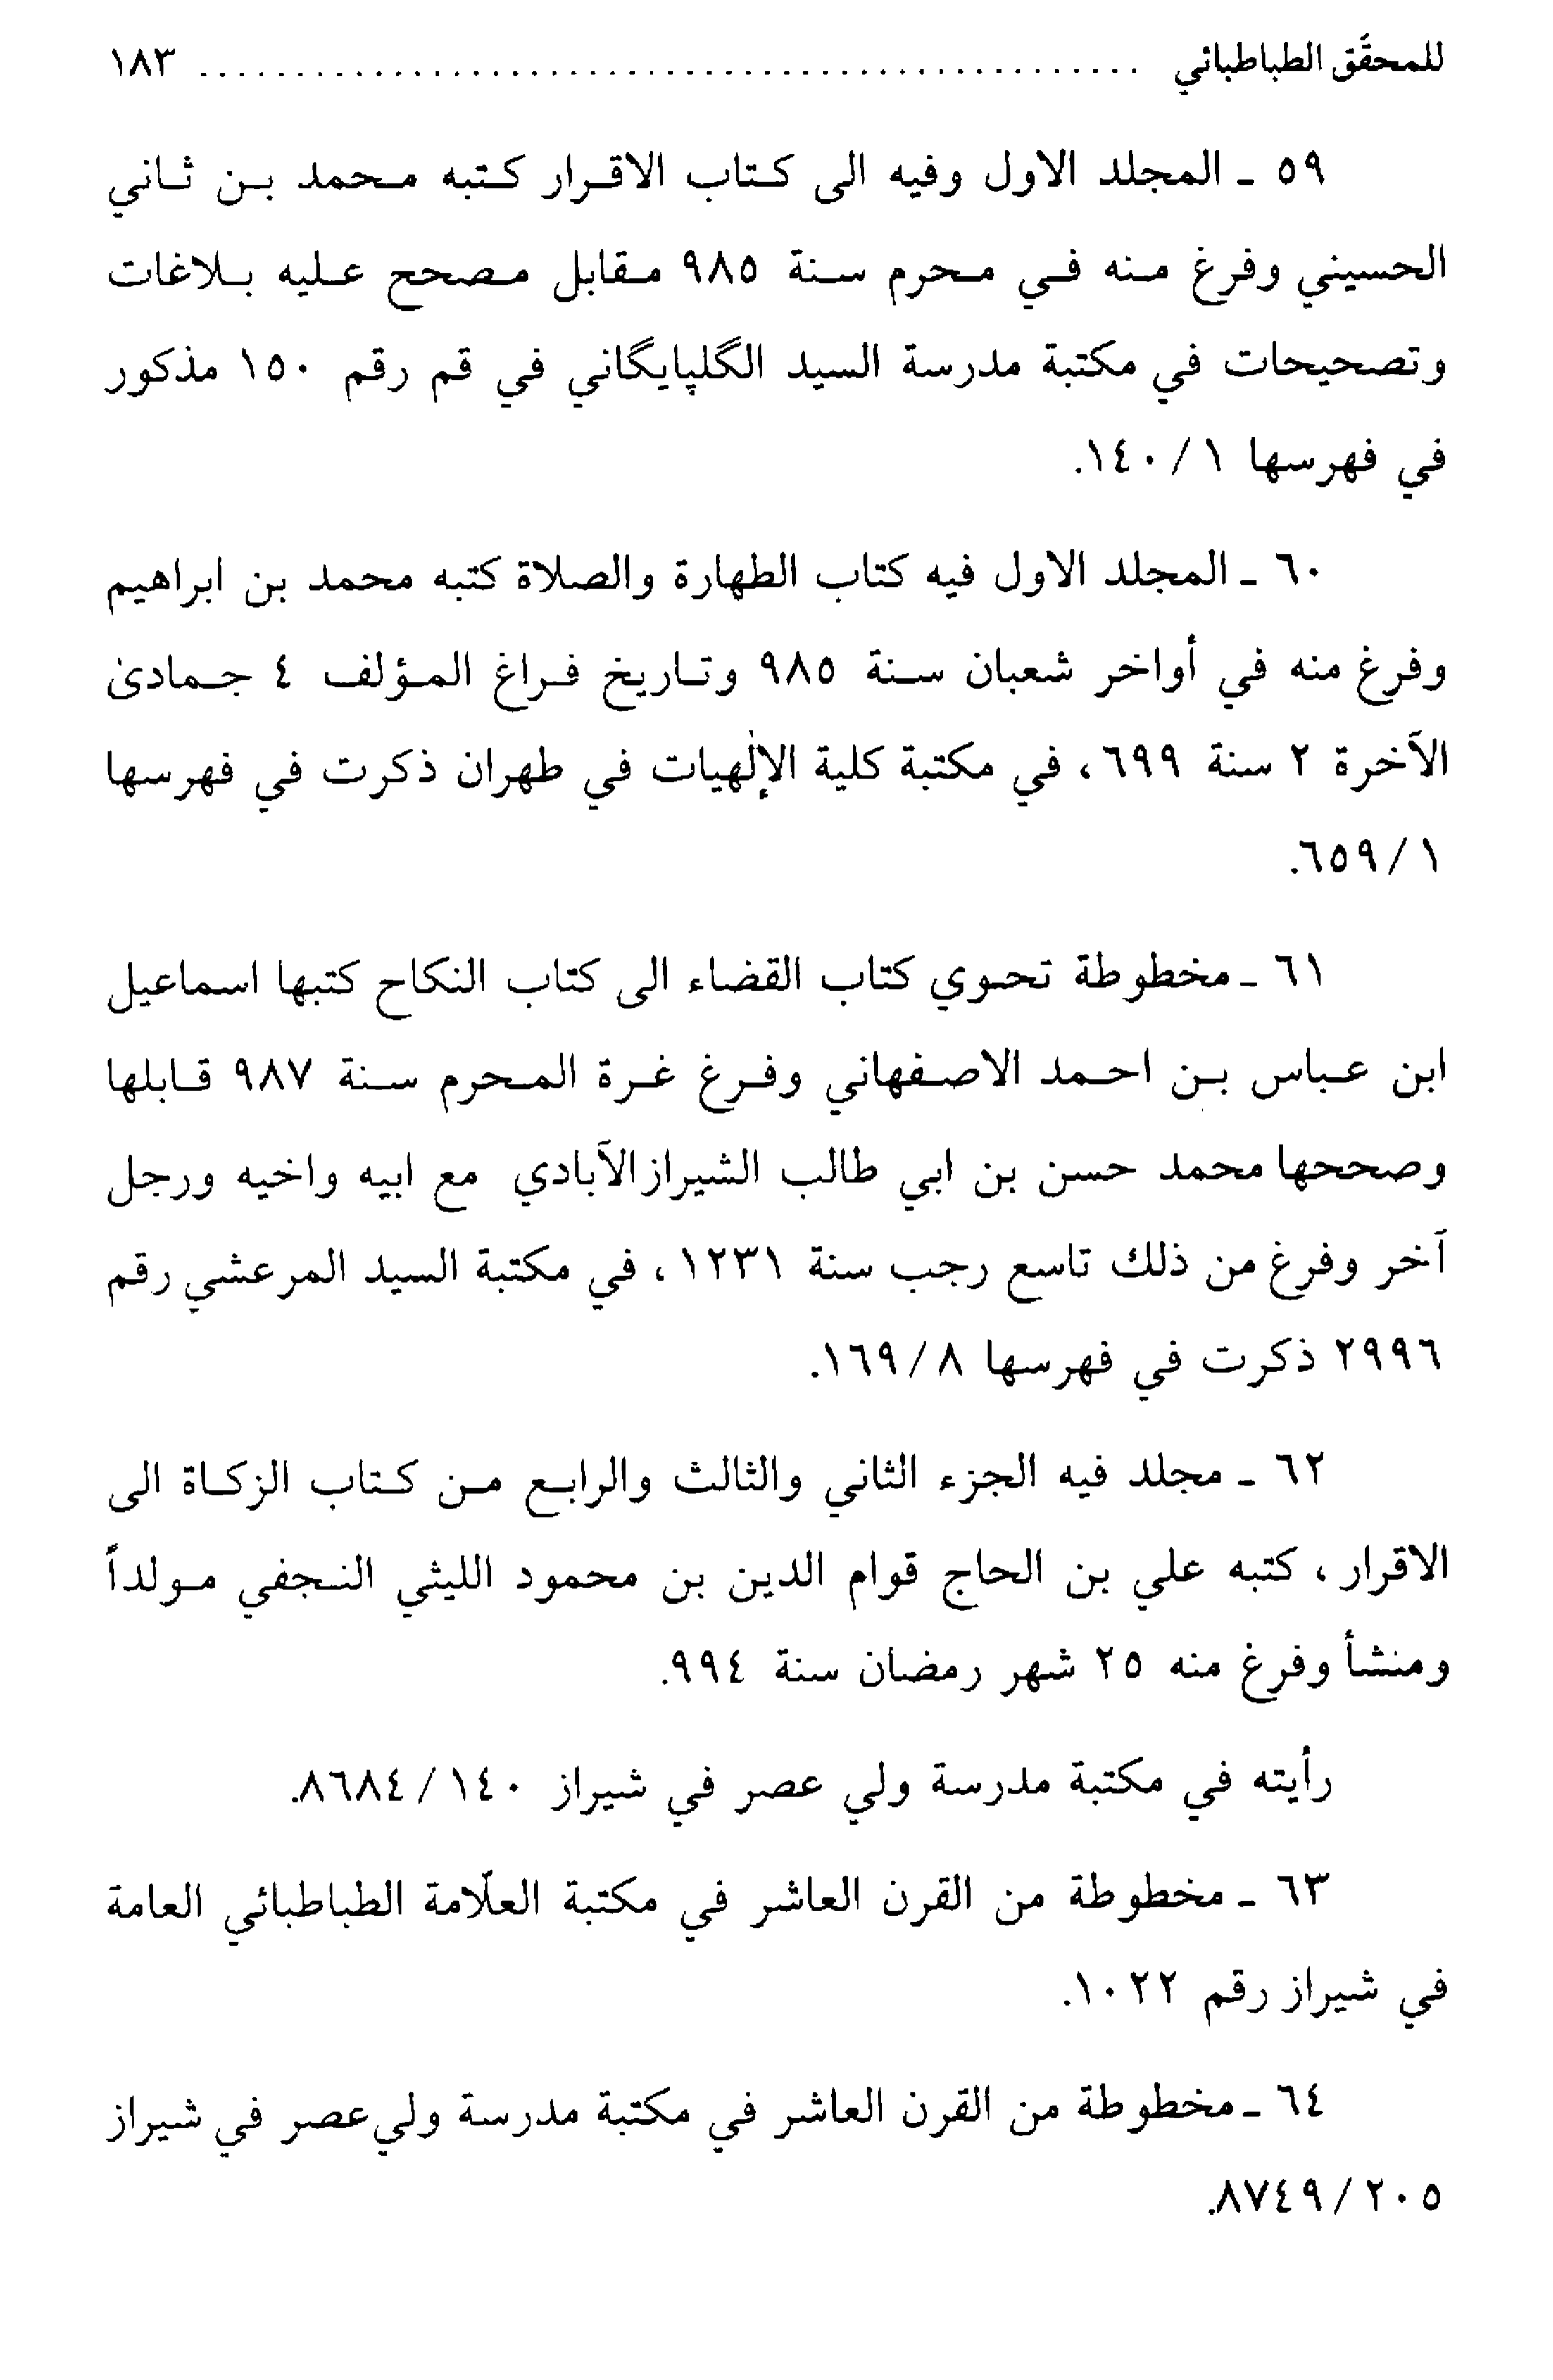 للمحقَّق الطباطبائي ................................................ ١٨٣
٥٩ ـ المجلد الاول وفيه الى كتاب الاقرار كتبه محمد بن ثاني
الحسيني وفرغ منه في محرم سنة ٩٨٥ مقابل مصحح عليه بلاغات
وتصحيحات في مكتبة مدرسة السيد الگلپايگاني في قم رقم ١٥٠ مذكور
في فهرسها ١/١٤٠.
٦٠ ـ المجلد الاول فيه كتاب الطهارة والصلاة كتبه محمد بن ابراهيم
وفرغ منه في أواخر شعبان سنة ٩٨٥ وتاريخ فراغ المؤلف ٤ جمادىٰ
الآخرة ٢ سنة ٦٩٩، في مكتبة كلية الإلٰهيات في طهران ذكرت في فهرسها
١/٦٥٩.
٦١ ـ مخطوطة تحوي كتاب القضاء الى كتاب النكاح كتبها اسماعيل
ابن عباس بن احمد الاصفهاني وفرغ غرة المحرم سنة ٩٨٧ قابلها
وصححها محمد حسن بن ابي طالب الشيرازالآبادي مع ابيه واخيه ورجل
آخر وفرغ من ذلك تاسع رجب سنة ١٢٣١، في مكتبة السيد المرعشي رقم
٢٩٩٦ ذكرت في فهرسها ٨/١٦٩.
٦٢ ـ مجلد فيه الجزء الثاني والثالث والرابع من كتاب الزكاة الى
الاقرار، كتبه علي بن الحاج قوام الدين بن محمود الليثي النجفي مولداً
ومنشأ وفرغ منه ٢٥ شهر رمضان سنة ٩٩٤.
رأيته في مكتبة مدرسة ولي عصر في شيراز ١٤٠/٨٦٨٤.
٦٣ ـ مخطوطة من القرن العاشر في مكتبة العلّامة الطباطبائي العامة
في شيراز رقم ١٠٢٢.
٦٤ ـ مخطوطة من القرن العاشر في مكتبة مدرسة ولي‌عصر في شيراز
٢٠٥/٨٧٤٩.